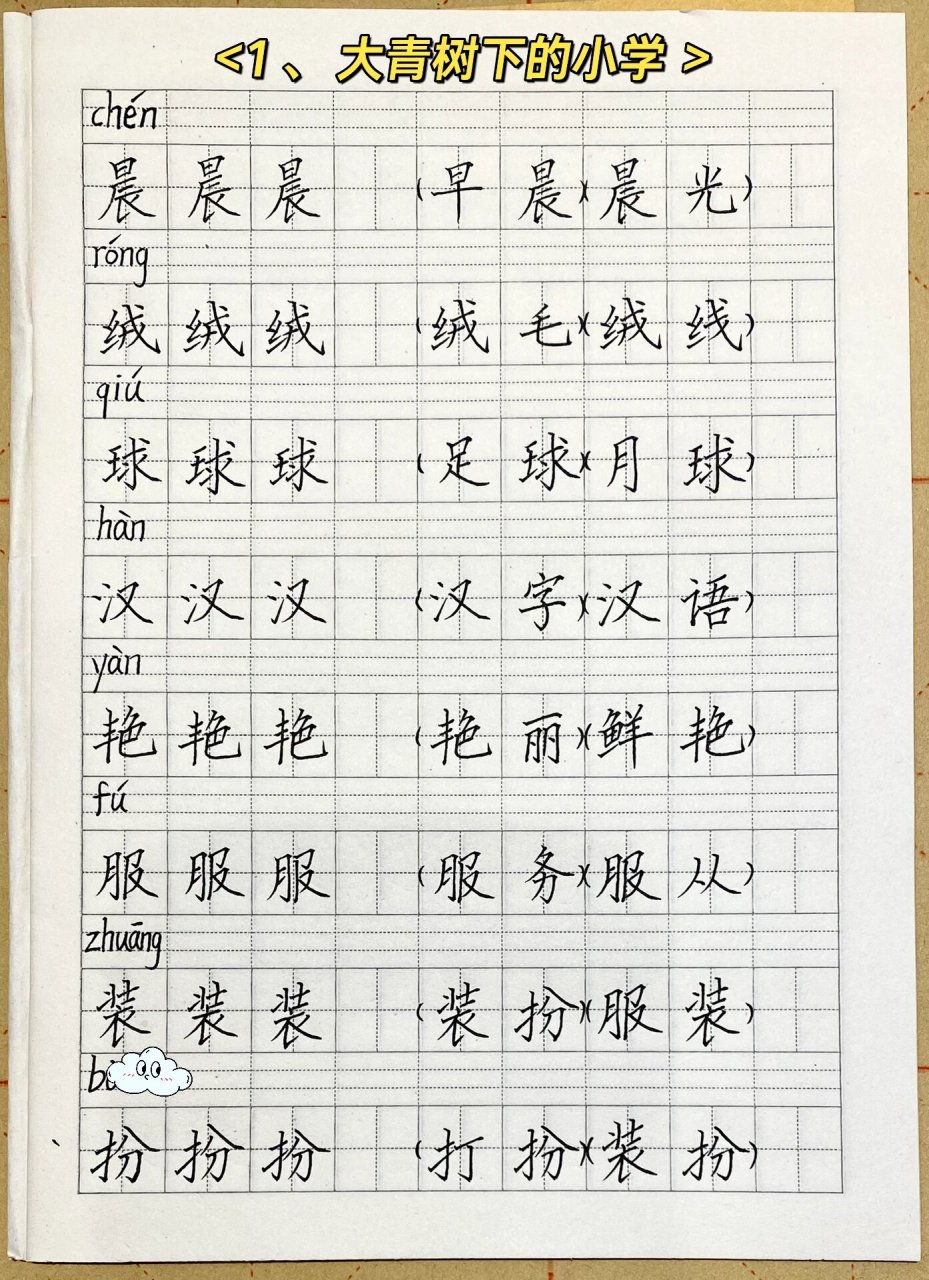 <1、大青树下的小学>
chén
晨 晨 晨 (早 晨)(晨 光)
róng
绒 绒 绒 (绒 毛)(绒 线)
qiú
球 球 球 (足 球)(月 球)
hàn
汉 汉 汉 (汉 字)(汉 语)
yàn
艳 艳 艳 (艳 丽)(鲜 艳)
fú
服 服 服 (服 务)(服 从)
zhuāng
装 装 装 (装 扮)(服 装)
扮 扮 扮 (打 扮)(装 扮)